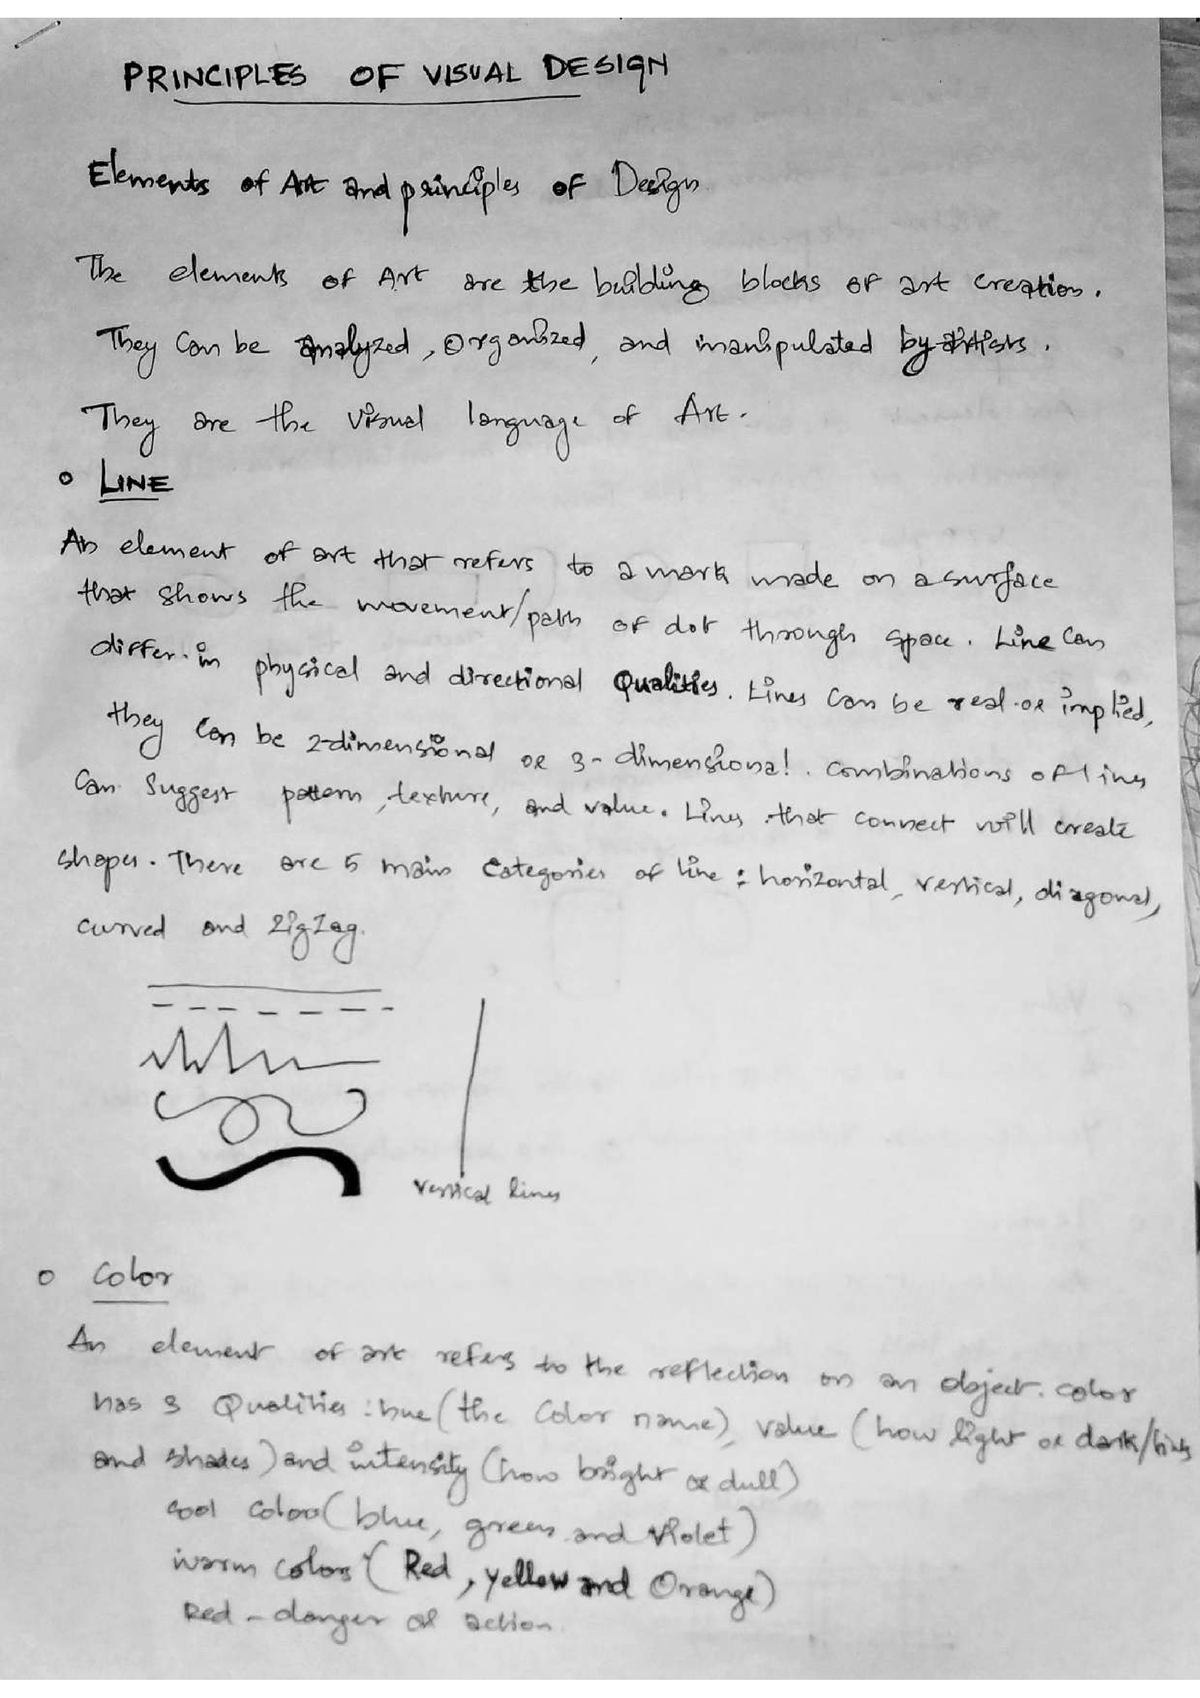 PRINCIPLES OF VISUAL DESIGN
Elements of Art and principles of Design
The elements of Art are the building blocks of art creation.
They can be analyzed, organized, and manipulated by artists.
They are the visual language of Art.
LINE
An element of art that refers to a mark made on a surface
that shows the movement/path of dot through space. Line can
differ in physical and directional Qualities. Lines can be real or implied,
they can be 2-dimensional or 3-dimensional. combinations of lines
can suggest pattern, texture, and value. Lines that connect will create
shapes. There are 5 main categories of line: horizontal, vertical, diagonal,
curved and zigzag.
vertical lines
Color
An element of art refers to the reflection on an object. color
has 3 Qualities: hue (the color name), value (how light or dark/tints
and shades) and intensity (how bright or dull)
cool color (blue, green and violet)
warm colors (Red, yellow and Orange)
Red - danger or action.